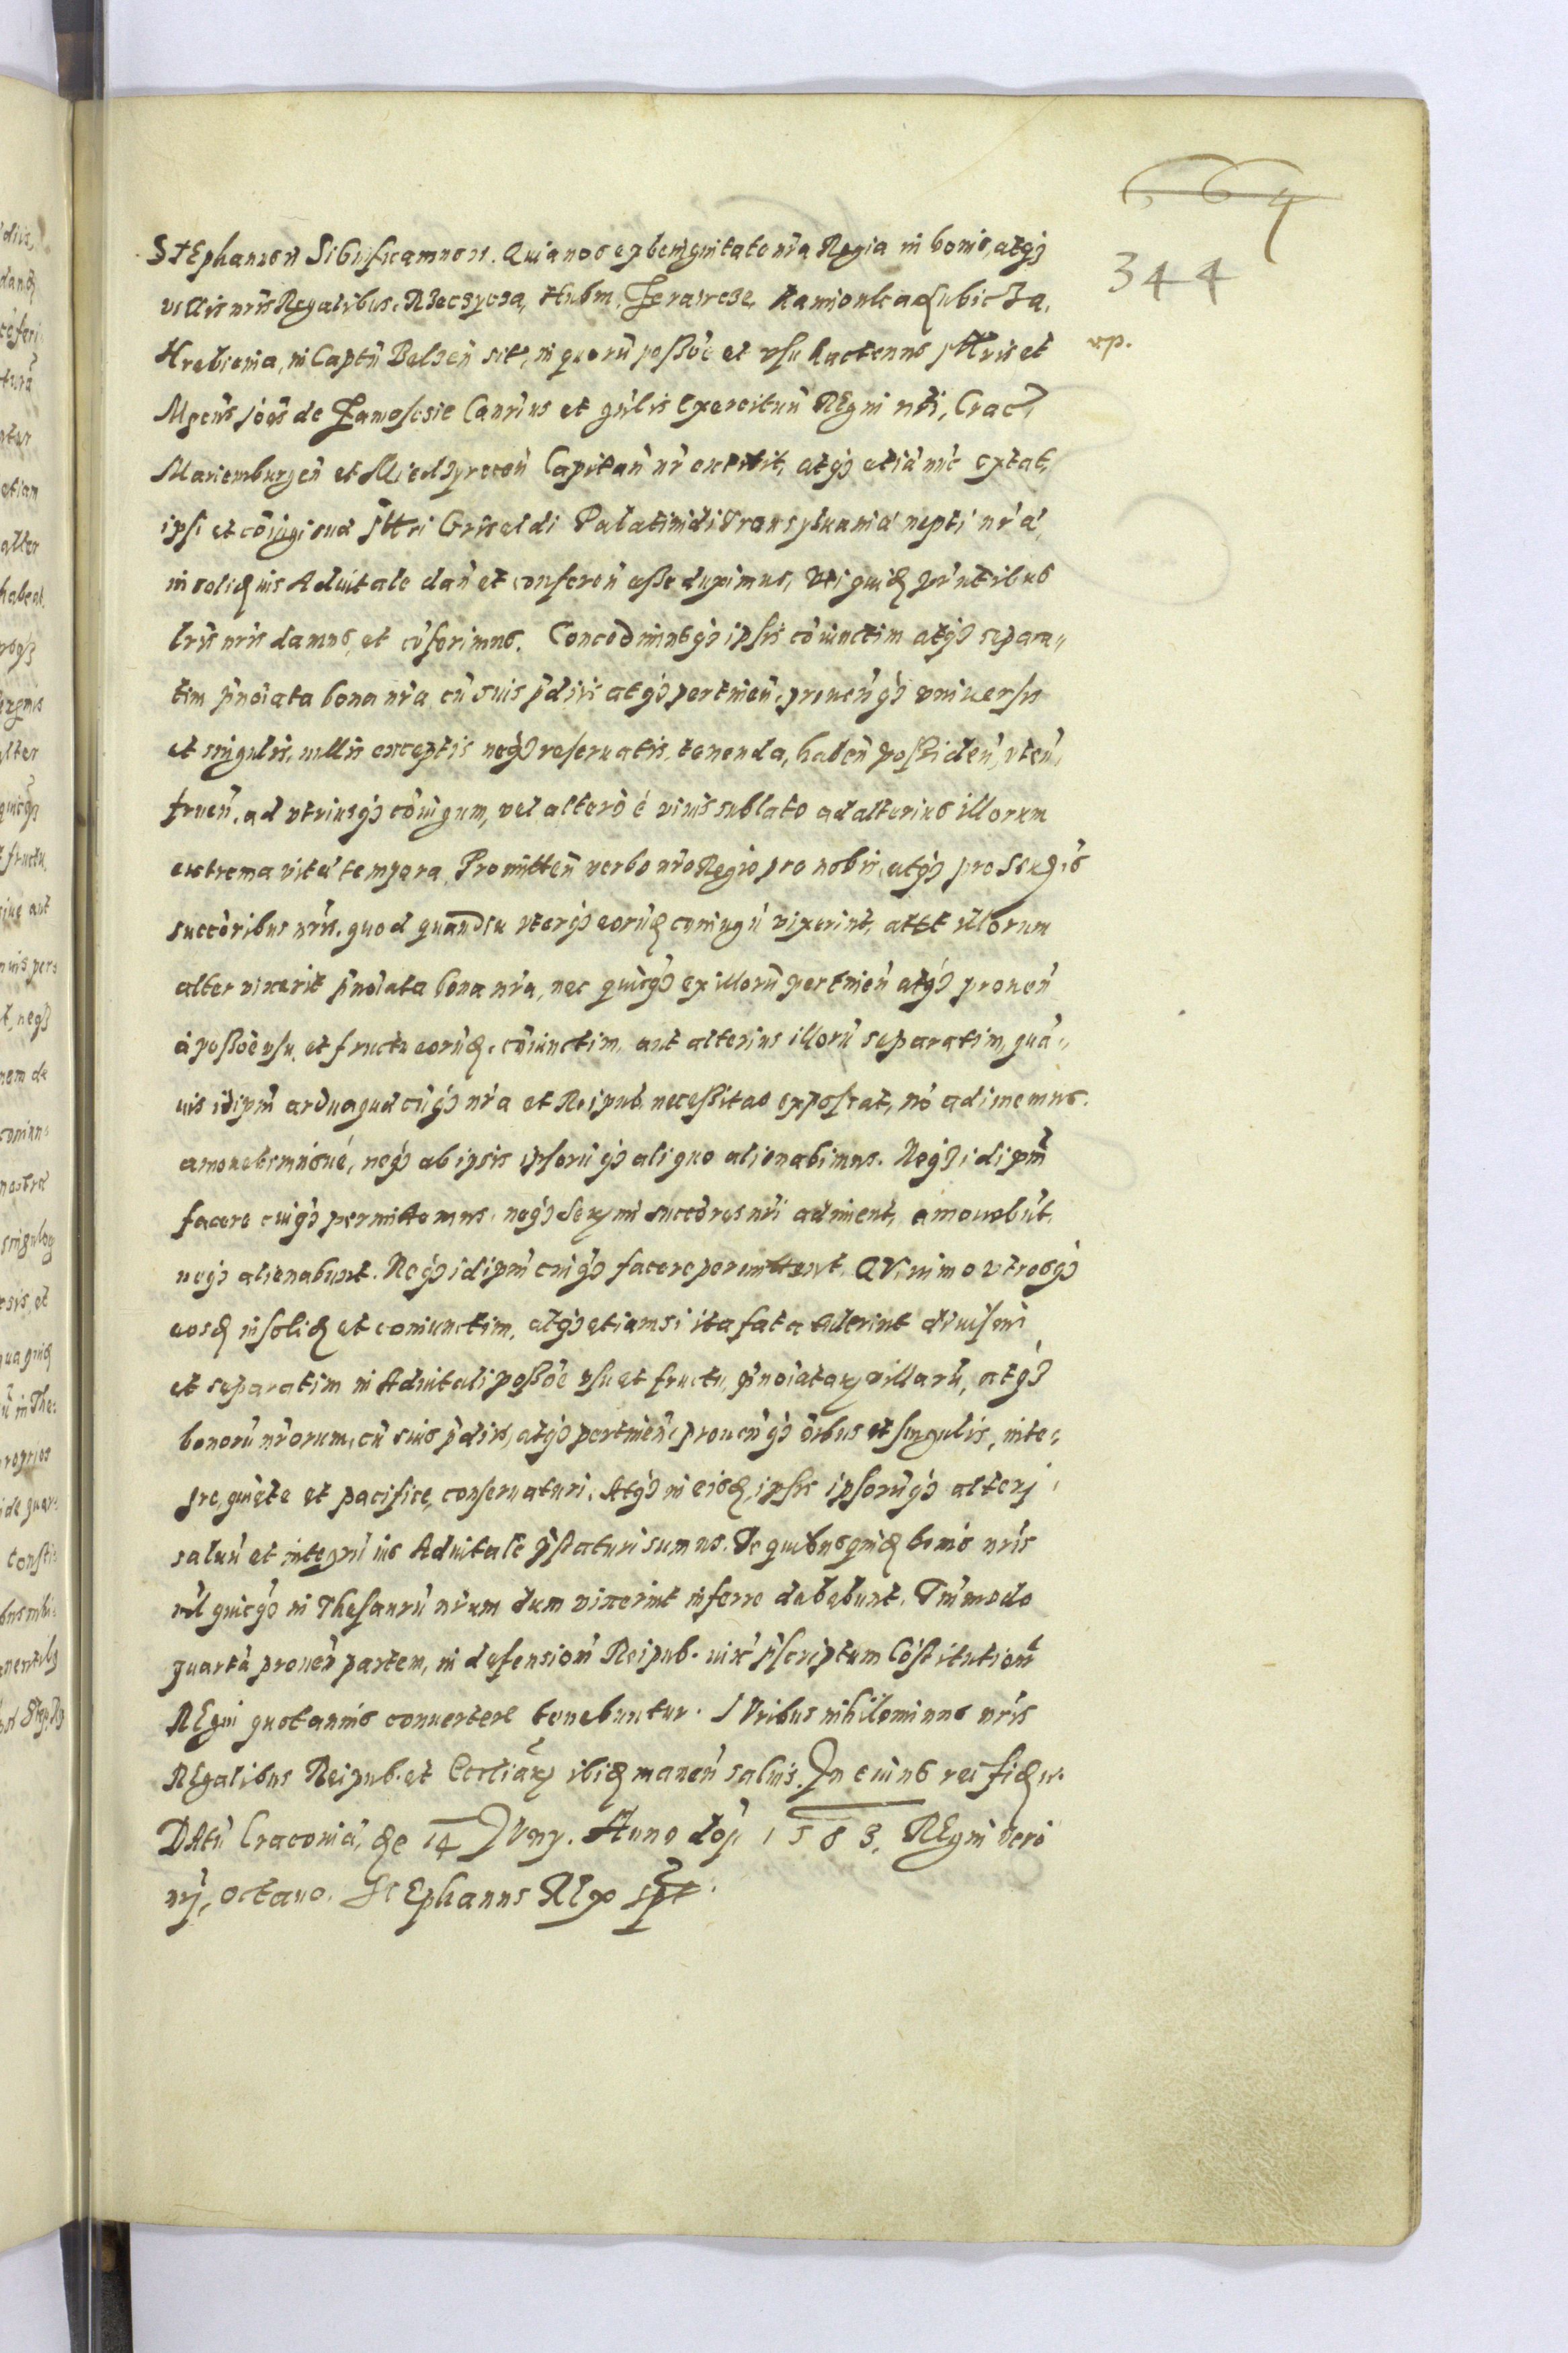 664
344
STEphanus n̄ Significamus n̄. Quia nos ex benignitate nr̄a Regia in bonis, atq̨
villis nr̄is Regalibus, Rzeczyca, Hubin, Zerawcze, Kamionka
Hrebienia, in Captū Belzeñ sit̄, in quorū poss̄oe et vsu hactenus Illr̄is et
xp.
Mgcūs Joēs de Zamoscie Canr̄ius et gn̄lis Exercituū REgni nr̄i, Crac̄,
Mariemburgeñ et Miedzyreceñ Capitan̄ nr̄ extitit, atq̨ etiā nūc extat,
ipsi et cōiugi suæ Illr̄i Griseldi Transyluaniæ nepti nr̄æ,
in solid̨ ius Aduitale dan̄ et conferen̄ esse duximus, vti quid̨ pr̄ntibus
lr̄is nr̄is damus, et cōferimus. Concedimusq̨ ipsis cōiunctim atq̨ separa„
tim pn̄oiata bona nr̄a, cū suis p̄diis atq̨ pertinen̄, prouen̄q̨ vniuersis
et singulis, nullis exceptis neq̨ reseruatis, tenenda, haben̄, possiden̄, vten̄,
fruen̄, ad vtriusq̨ cōiugum, vel altero è viuis sublato ad alterius illorum
extrema vitæ tempora. Promitten̄ verbo nr̄o Regio pro nobis, atq̨ pro Ser̄mis
succ̄oribus nr̄is, quod quandiu vterq̨ eorūd̨ coniugū vixerint, aut illorum
alter vixerit pn̄oiata bona nr̄a, nec quicq̨ ex illorū pertinen̄ atq̨ prouen̄
à poss̄oe vsu, et fructu eorūd̨, cōiunctim, aut alterius illorū separatim, quā„
uis idipm̄ ardua quæcūq̨ nr̄a et Reipub. necessitas exposcat, nō adimemus.
amouebimusué, neq̨ ab ipsis ipsorūq̨ aliquo alienabimus. Neq̨ idipm̄
facere cuiq̨ permittemus, neq̨ Ser̄mi succ̄ores nr̄i adiment, amouebūt,
neq̨ alienabunt. Neq̨ idipm̄ cuiq̨ facere permittent. QVinimo vtrosq̨
eosd̨ in solid̨ et coniunctim, atq̨ etiamsi ita fata tulerint diuisim
et separatim in Aduitali poss̄oe vsu et fructu, pn̄oiatar̨ villarū, atq̨
bonorū nr̄orum, cū suis p̄diis, atq̨ pertinen̄, prouen̄q̨ ōibus et singulis, inte„
gre, quiete et pacifice, conseruaturi, Atq̨ in eisd̨, ipsis ipsorūq̨ alteri
saluū et integrū ius Aduitale p̄staturi sumus. De quibusquid̨ bonis nr̄is
nil quicq̨ in Thesaurū nr̄um dum vixerint inferre debebunt. Tm̄modo
quartā prouen̄ partem, in defension̄ Reipub. iux̄ p̄scriptum Cōstitution̄
REgni quotannis conuertere tenebuntur. IVribus nihilominus nr̄is
REgalibus Reipub. et Eccl̄iar̨ ibid̨ manen̄ saluis. In cuius rei fid̨ n̄.
DAtū Cracouiæ, die 14 IVny. Anno dōj 1583. REgni vero
nr̄j, octauo. StEphanus REx sst.